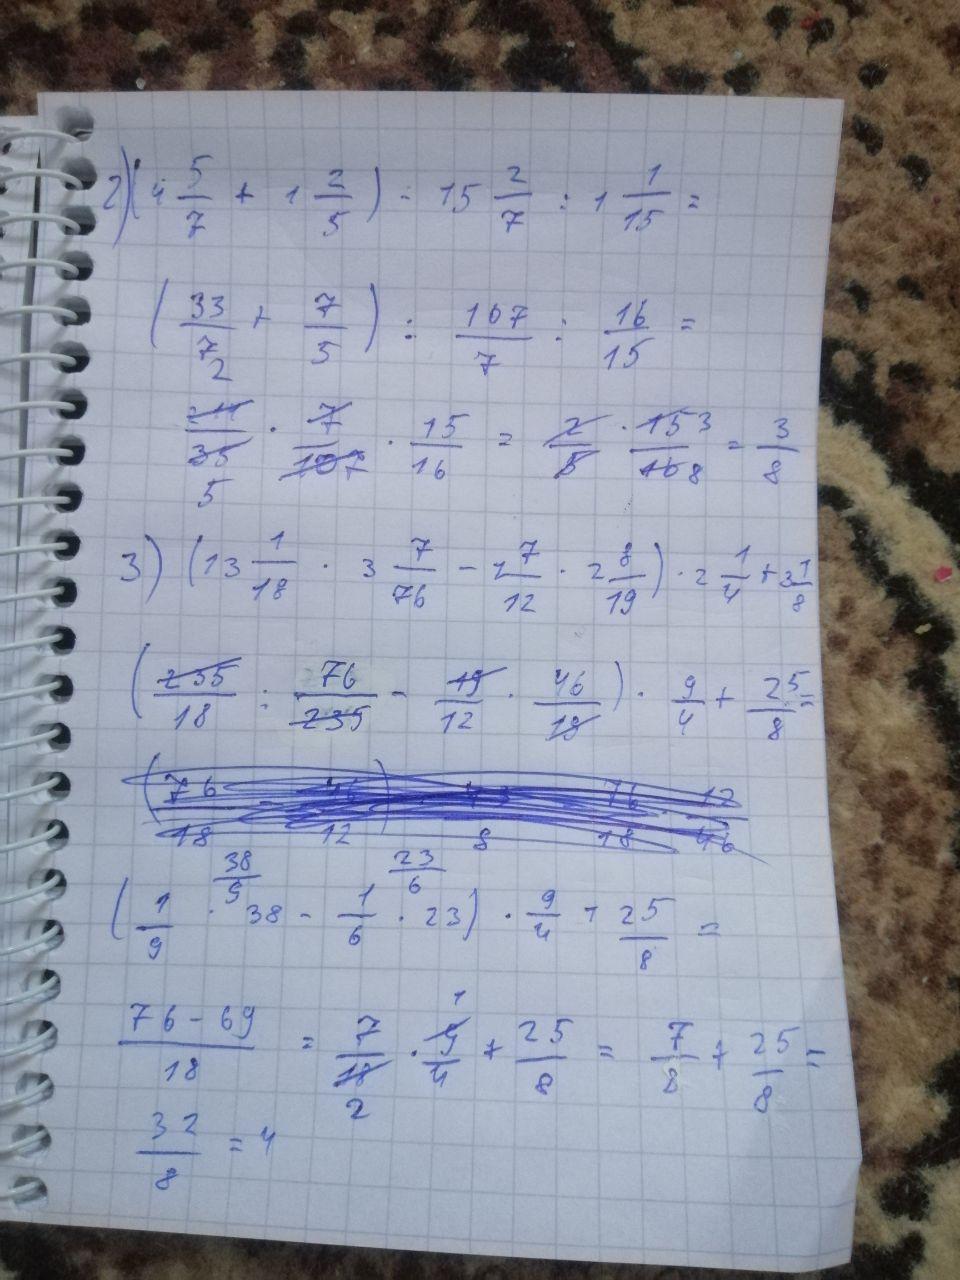 2) (4 5/7 + 1 2/5) : 15 2/7 : 1 1/15 =
(33/7 + 7/5) : 107/7 : 16/15 =
2
214/35 · 7/107 · 15/16 = 2/5 · 15/16 3 8 = 3/8
5
3) (13 1/18 · 3 7/76 - 1 7/12 · 2 8/19) · 2 1/4 + 3 1/8
(235/18 : 76/235 - 19/12 · 46/19) · 9/4 + 25/8 =
38/9 23/6
(1/9 · 38 - 1/6 · 23) · 9/4 + 25/8 =
76 - 69/18 = 7/18 2 · 9/4 1 + 25/8 = 7/8 + 25/8 =
32/8 = 4